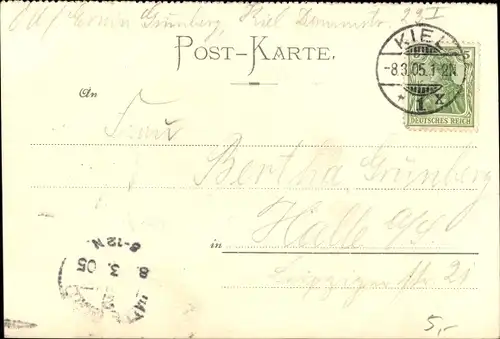 Erwin Grünberg, Kiel Dammstr. 29 I
POST-KARTE.
KIEL
-8.3.05.1-2N.
* 1 x
5
DEUTSCHES REICH
An
Frau
Bertha Grünberg
in Halle a/S.
Leipzigerstr. 21
8. 3. 05
6-12 N.
5,-